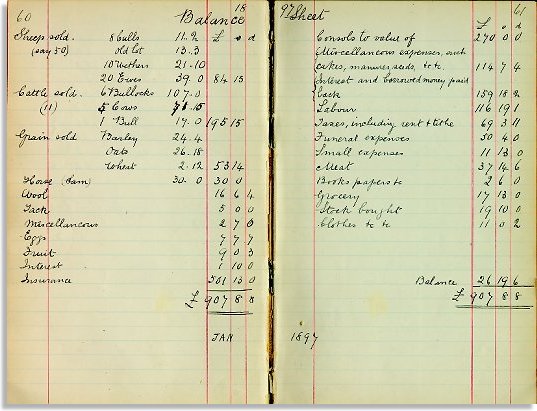 60 Balance 18
Sheep sold. 8 bulls 11. 2 £ s d
(say 50) old lot 13. 3
10 wethers 21 - 10
20 Ewes 39. 0 84 15
Cattle sold. 6 Bullocks 107. 0
(11) 5 Cows 15
1 Bull 19. 0 195 15
Grain sold Barley 24. 4
Oats 26. 18
Wheat 2. 12 53 14
Horse (Sam) 30. 0 30 0
Wool 16 6 4
Tack 5 0 0
Miscellaneous 2 7 0
Eggs 7 7 7
Fruit 9 0 3
Interest 1 10 0
Insurance 501 13 0
£ 907 8 8
JAN
97 Sheet 61
£ s d
Consols to value of 270 0 0
Miscellaneous expenses, such
cakes, manures, seeds, &c &c 114 7 4
Interest and borrowed money paid
back 159 18 2
Labour 116 19 1
Taxes, including rent & tithe 69 3 11
Funeral expenses 50 4 0
Small expenses 11 13 0
Meat 37 14 6
Books papers &c 2 6 0
Grocery 17 13 0
Stock bought 19 10 0
Clothes &c &c 11 0 2
Balance 26 19 6
£ 907 8 8
1897